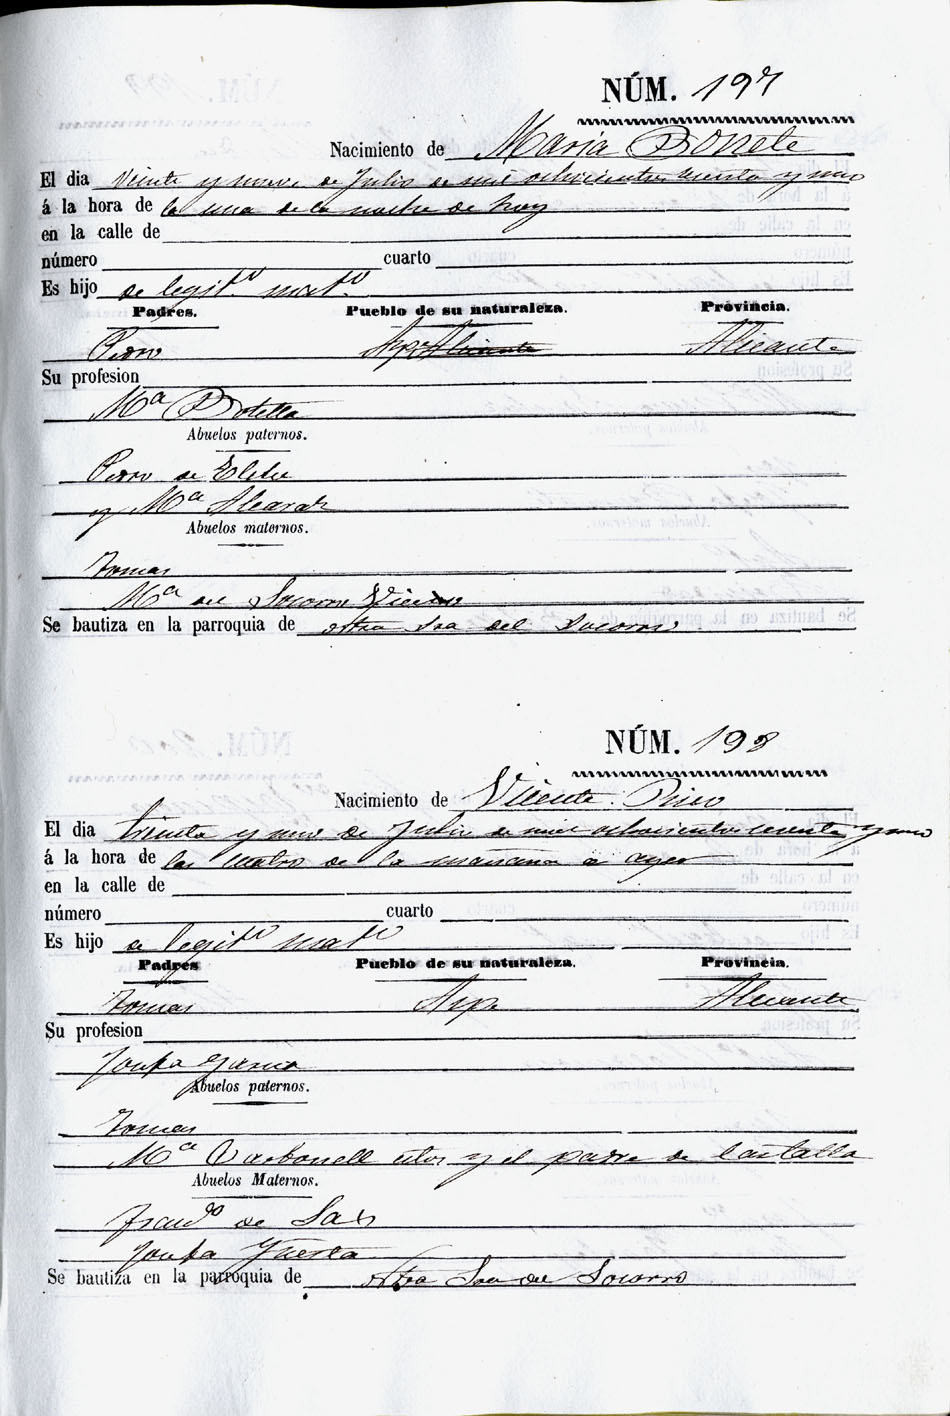 NÚM. 197
Nacimiento de Maria Bonete
El dia veinte y nueve de Julio de mil ochocientos sesenta y uno
á la hora de la una de la noche de hoy
en la calle de
número cuarto
Es hijo de legit.º mat.º
Padres. Pueblo de su naturaleza. Provincia.
Pedro Aspe Alicante Alicante
Su profesion
Mª Botella
Abuelos paternos.
Pedro de Elche
y Mª Alcaraz
Abuelos maternos.
Tomas
Mª del Socorro
Se bautiza en la parroquia de ntra Sra del Socorro
NÚM. 198
Nacimiento de Vicente Pico
El dia treinta y uno de Julio de mil ochocientos sesenta y uno
á la hora de las cuatro de la mañana de ayer
en la calle de
número cuarto
Es hijo de legit.º mat.º
Padres Pueblo de su naturaleza. Provincia.
Tomas Aspe Alicante
Su profesion
Josefa Garcia
Abuelos paternos.
Tomas
Mª Carbonell y el padre de Castalla
Abuelos Maternos.
Fran.co de Sax
Josefa
Se bautiza en la parroquia de ntra Sra del Socorro